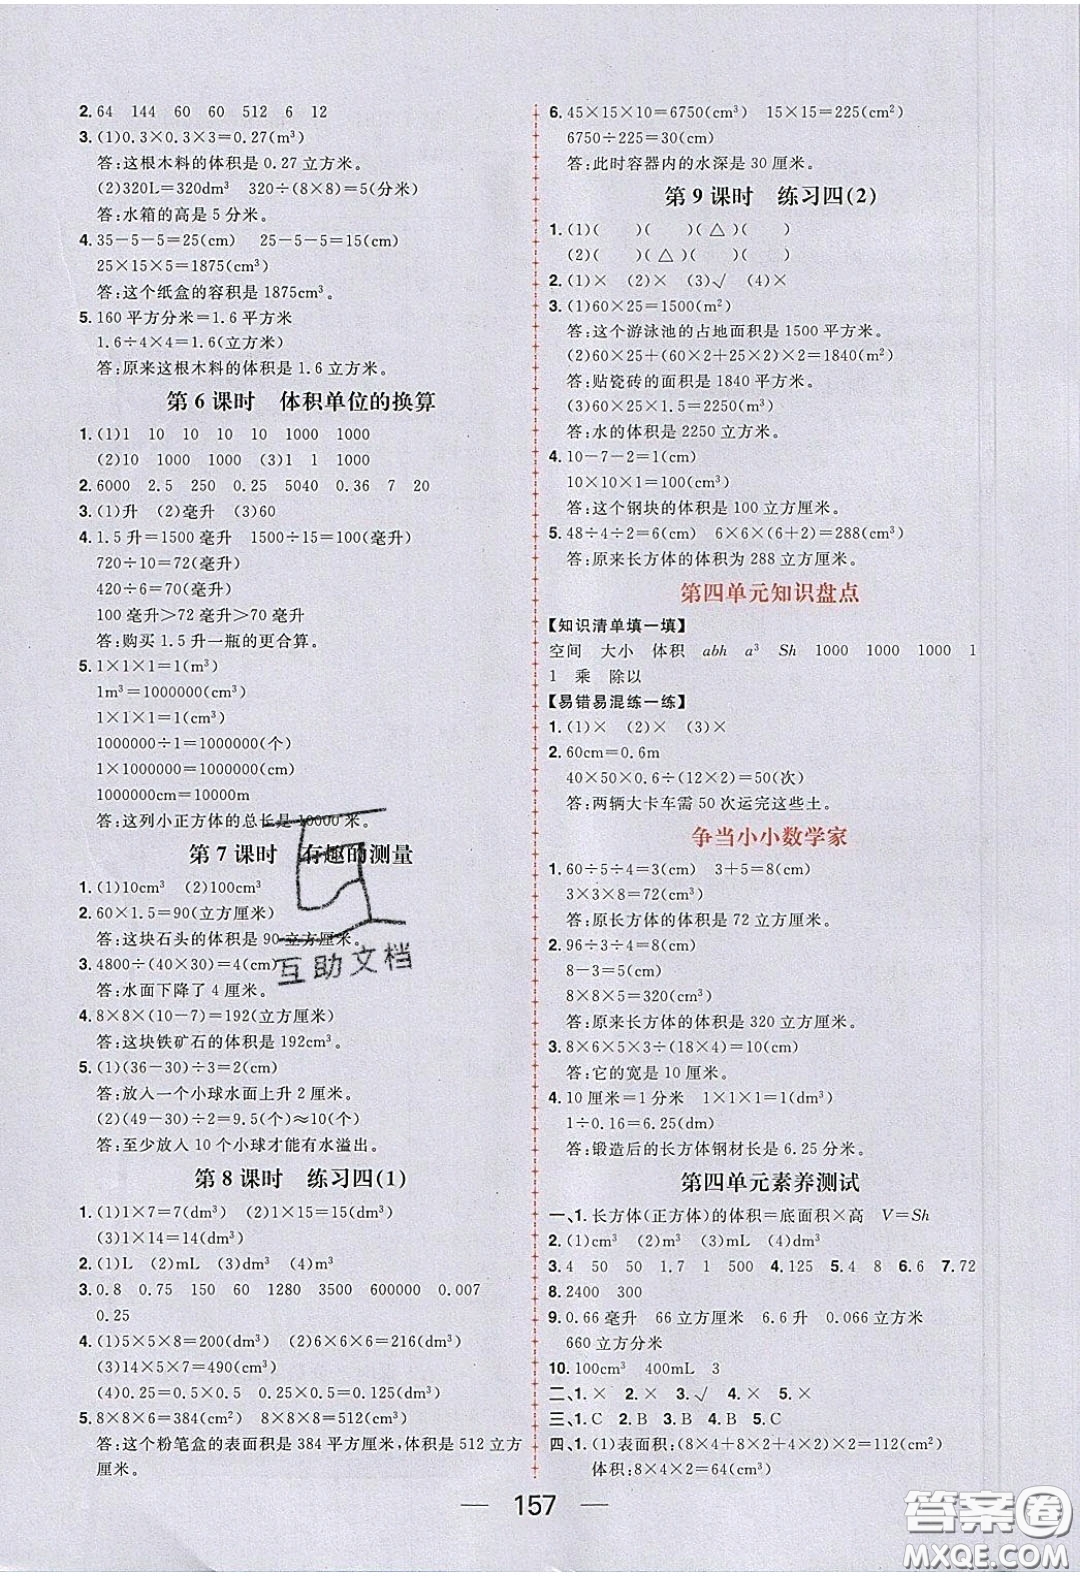 2. 64 144 60 60 512 6 12
3. (1)0.3×0.3×3=0.27(m³)
答:这根木料的体积是 0.27 立方米。
(2)320L=320dm³ 320÷(8×8)=5(分米)
答:水箱的高是 5 分米。
4. 35-5-5=25(cm) 25-5-5=15(cm)
25×15×5=1875(cm³)
答:这个纸盒的容积是 1875cm³。
5. 160 平方分米=1.6 平方米
1.6÷4×4=1.6(立方米)
答:原来这根木料的体积是 1.6 立方米。
第 6 课时 体积单位的换算
1. (1)1 10 10 10 10 1000 1000
(2)10 1000 1000 (3)1 1 1000
2. 6000 2.5 250 0.25 5040 0.36 7 20
3. (1)升 (2)毫升 (3)60
4. 1.5 升=1500 毫升 1500÷15=100(毫升)
720÷10=72(毫升)
420÷6=70(毫升)
100 毫升>72 毫升>70 毫升
答:购买 1.5 升一瓶的更合算。
5. 1×1×1=1(m³)
1m³=1000000(cm³)
1×1×1=1(cm³)
1000000÷1=1000000(个)
1×1000000=1000000(cm)
1000000cm=10000m
答:这列小正方体的总长是 10000 米。
第 7 课时 有趣的测量
1. (1)10cm³ (2)100cm³
2. 60×1.5=90(立方厘米)
答:这块石头的体积是 90 立方厘米。
3. 4800÷(40×30)=4(cm)
答:水面下降了 4 厘米。
4. 8×8×(10-7)=192(立方厘米)
答:这块铁矿石的体积是 192cm³。
5. (1)(36-30)÷3=2(cm)
答:放入一个小球水面上升 2 厘米。
(2)(49-30)÷2=9.5(个)≈10(个)
答:至少放入 10 个小球才能有水溢出。
第 8 课时 练习四(1)
1. (1)1×7=7(dm³) (2)1×15=15(dm³)
(3)1×14=14(dm³)
2. (1)L (2)mL (3)dm³ (4)m³
3. 0.8 0.75 150 60 1280 3500 600000 0.007
0.25
4. (1)5×5×8=200(dm³) (2)6×6×6=216(dm³)
(3)14×5×7=490(cm³)
(4)0.25=0.5×0.5 0.25×0.5=0.125(m³)
5. 8×8×6=384(cm²) 8×8×8=512(cm³)
答:这个粉笔盒的表面积是 384 平方厘米,体积是 512 立方
厘米。
6. 45×15×10=6750(cm³) 15×15=225(cm²)
6750÷225=30(cm)
答:此时容器内的水深是 30 厘米。
第 9 课时 练习四(2)
1. (1)( ) ( )(△)( )
(2)( )(△)( ) ( )
2. (1)× (2)× (3)√ (4)×
3. (1)60×25=1500(m²)
答:这个游泳池的占地面积是 1500 平方厘米。
(2)60×25+(60×2+25×2)×2=1840(m²)
答:贴瓷砖的面积是 1840 平方厘米。
(3)60×25×1.5=2250(m³)
答:水的体积是 2250 立方厘米。
4. 10-7-2=1(cm)
10×10×1=100(cm³)
答:这个钢块的体积是 100 立方厘米。
5. 48÷4÷2=6(cm) 6×6×(6+2)=288(cm³)
答:原来长方体的体积为 288 立方厘米。
第四单元知识盘点
【知识清单填一填】
空间 大小 体积 abh a³ Sh 1000 1000 1000 1
1 乘 除以
【易错易混练一练】
1. (1)× (2)× (3)×
2. 60cm=0.6m
40×50×0.6÷(12×2)=50(次)
答:两辆大卡车需 50 次运完这些土。
争当小小数学家
1. 60÷5÷4=3(cm) 3+5=8(cm)
3×3×8=72(cm³)
答:原长方体的体积是 72 立方厘米。
2. 96÷3÷4=8(cm)
8-3=5(cm)
8×8×5=320(cm³)
答:原来长方体的体积是 320 立方厘米。
3. 8×6×5×3÷(18×4)=10(cm)
答:它的宽是 10 厘米。
4. 10 厘米=1 分米 1×1×1=1(dm³)
1÷0.16=6.25(dm)
答:锻造后的长方体钢材长是 6.25 分米。
第四单元素养测试
一、1. 长方体(正方体)的体积=底面积×高 V=Sh
2. (1)cm³ (2)m³ (3)mL (4)mL
3. 4 50 50 1.7 1 500 4. 125 5. 4 8 6. 6 7. 72
8. 2400 300
9. 0.66 毫升 66 立方厘米 6.6 升 0.066 立方米
660 立方分米
10. 100cm³ 400mL 3
二、1. × 2. × 3. √ 4. × 5. ×
三、1. C 2. B 3. C 4. B 5. C
四、1. (1)表面积:(8×4+8×2+4×2)×2=112(cm²)
体积:8×4×2=64(cm³)
157
互助文档
答案圈
MXQE.COM